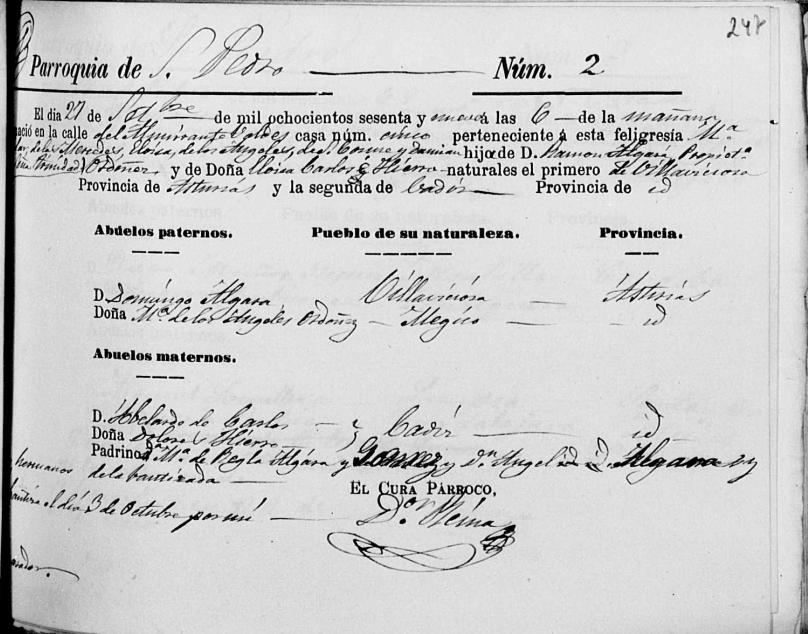 247
Parroquia de S. Pedro Núm. 2
El dia 27 de Stbre de mil ochocientos sesenta y nueve á las 6 de la mañana
nació en la calle del Almirante Valdes casa núm. cinco perteneciente á esta feligresía Mª
de las Mercedes, Eloisa, de los Angeles, de S. Cosme y Damian hija de D. Ramon Algara, Propietº
Trinidad Ordoñez y de Doña Eloisa Carlos é Hierro naturales el primero de Villaviciosa
Provincia de Asturias y la segunda de Cadiz Provincia de id
Abuelos paternos. Pueblo de su naturaleza. Provincia.
D. Domingo Algara Villaviciosa Asturias
Doña Mª de los Angeles Ordoñez Megico id
Abuelos maternos.
D. Abelardo de Carlos
Doña Dolores Hierro } Cadiz id
Padrinos Dª Mª de Regla Algára y Gomez y Dn Angel id id. Algara y
hermanos de la bautizada
el dia 3 de Octubre por mí
EL CURA PÁRROCO,
Dor Reina